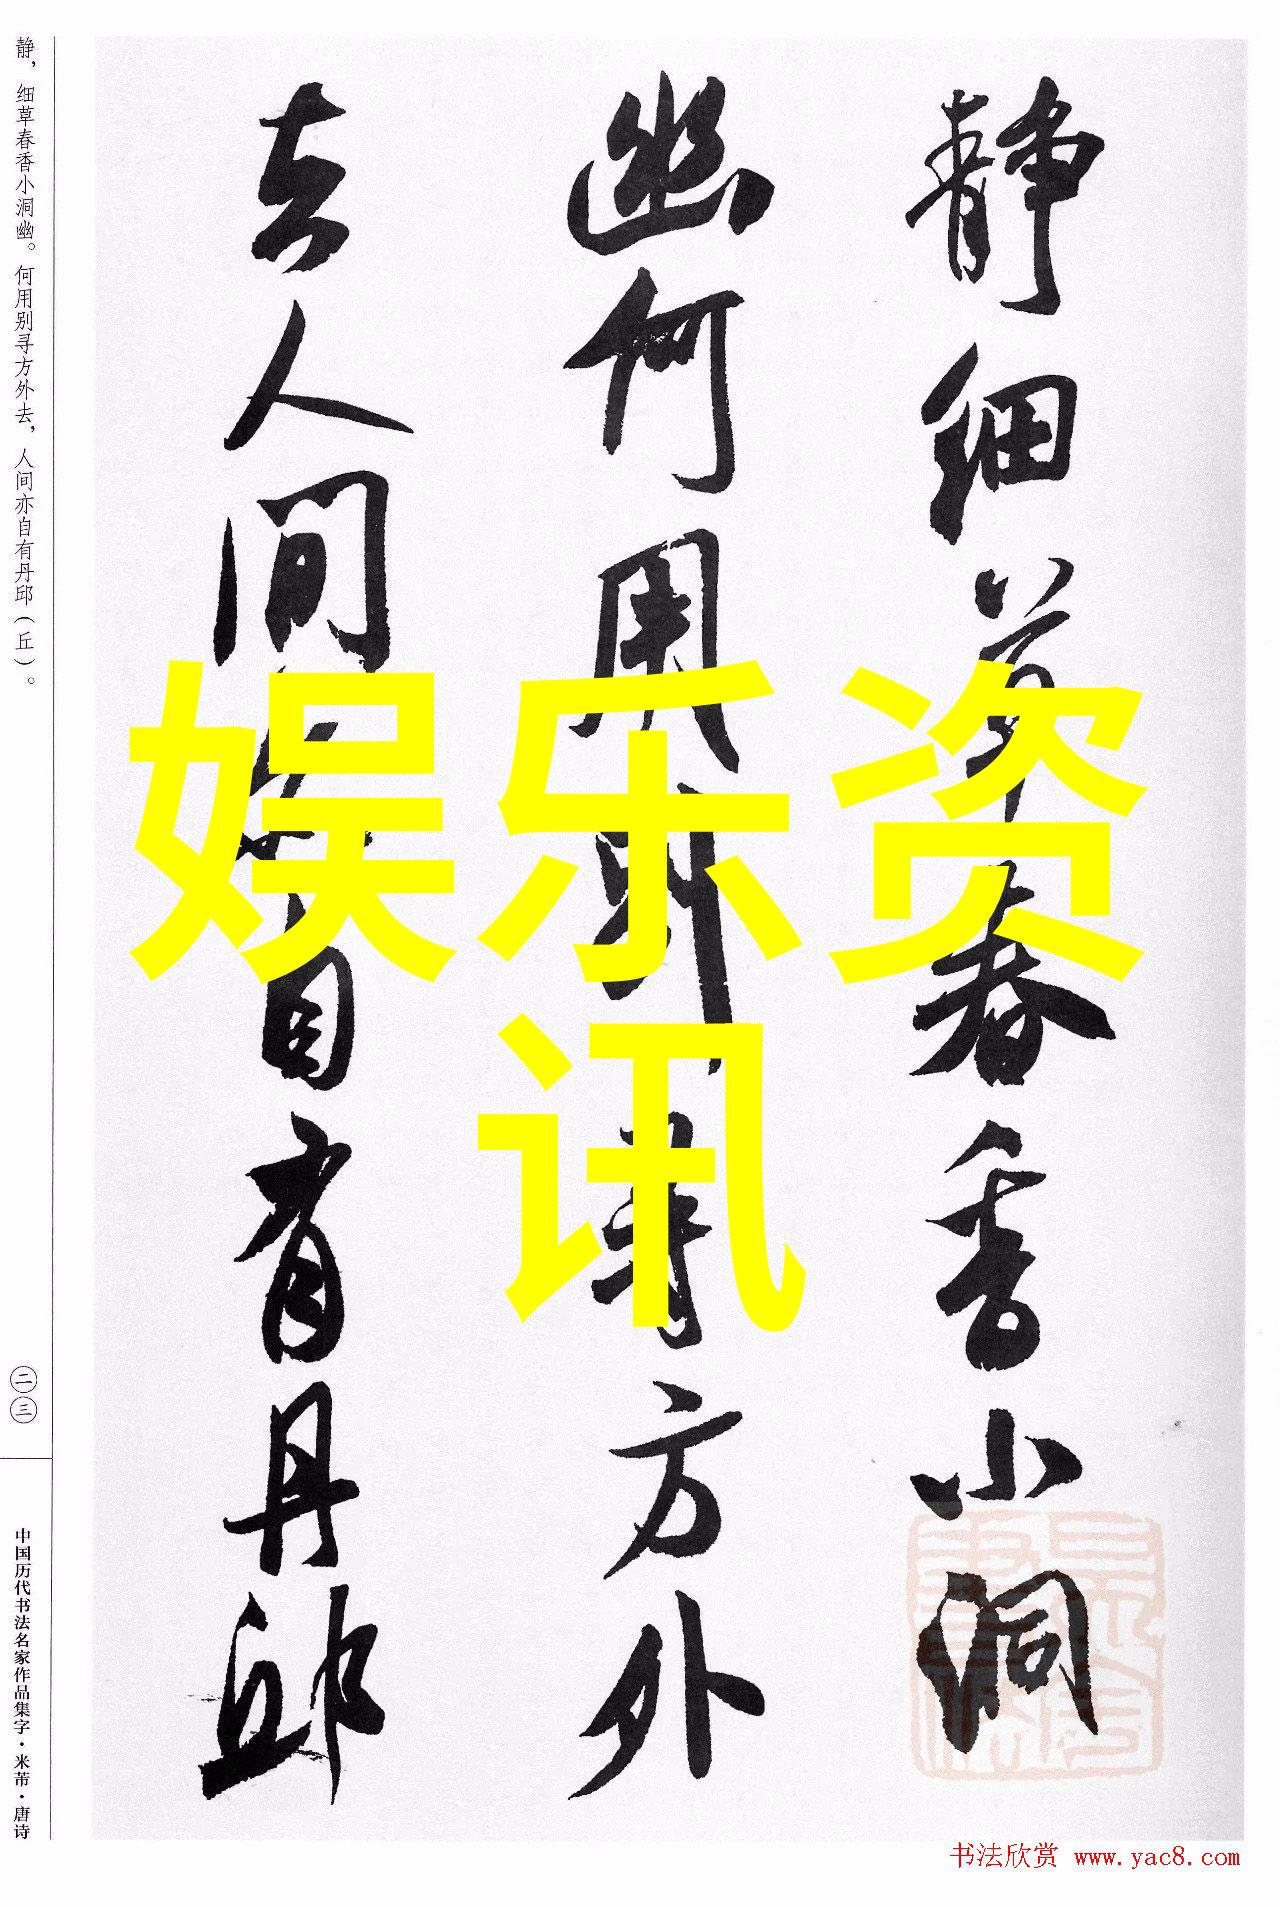 静细草春香小洞
幽何用别寻方外
去人间亦自有丹邱
静，细草春香小洞幽。何用别寻方外去，人间亦自有丹邱（丘）。
二三
中国历代书法名家作品集字·米芾·唐诗
娱乐资
讯
书法欣赏 www.yac8.com